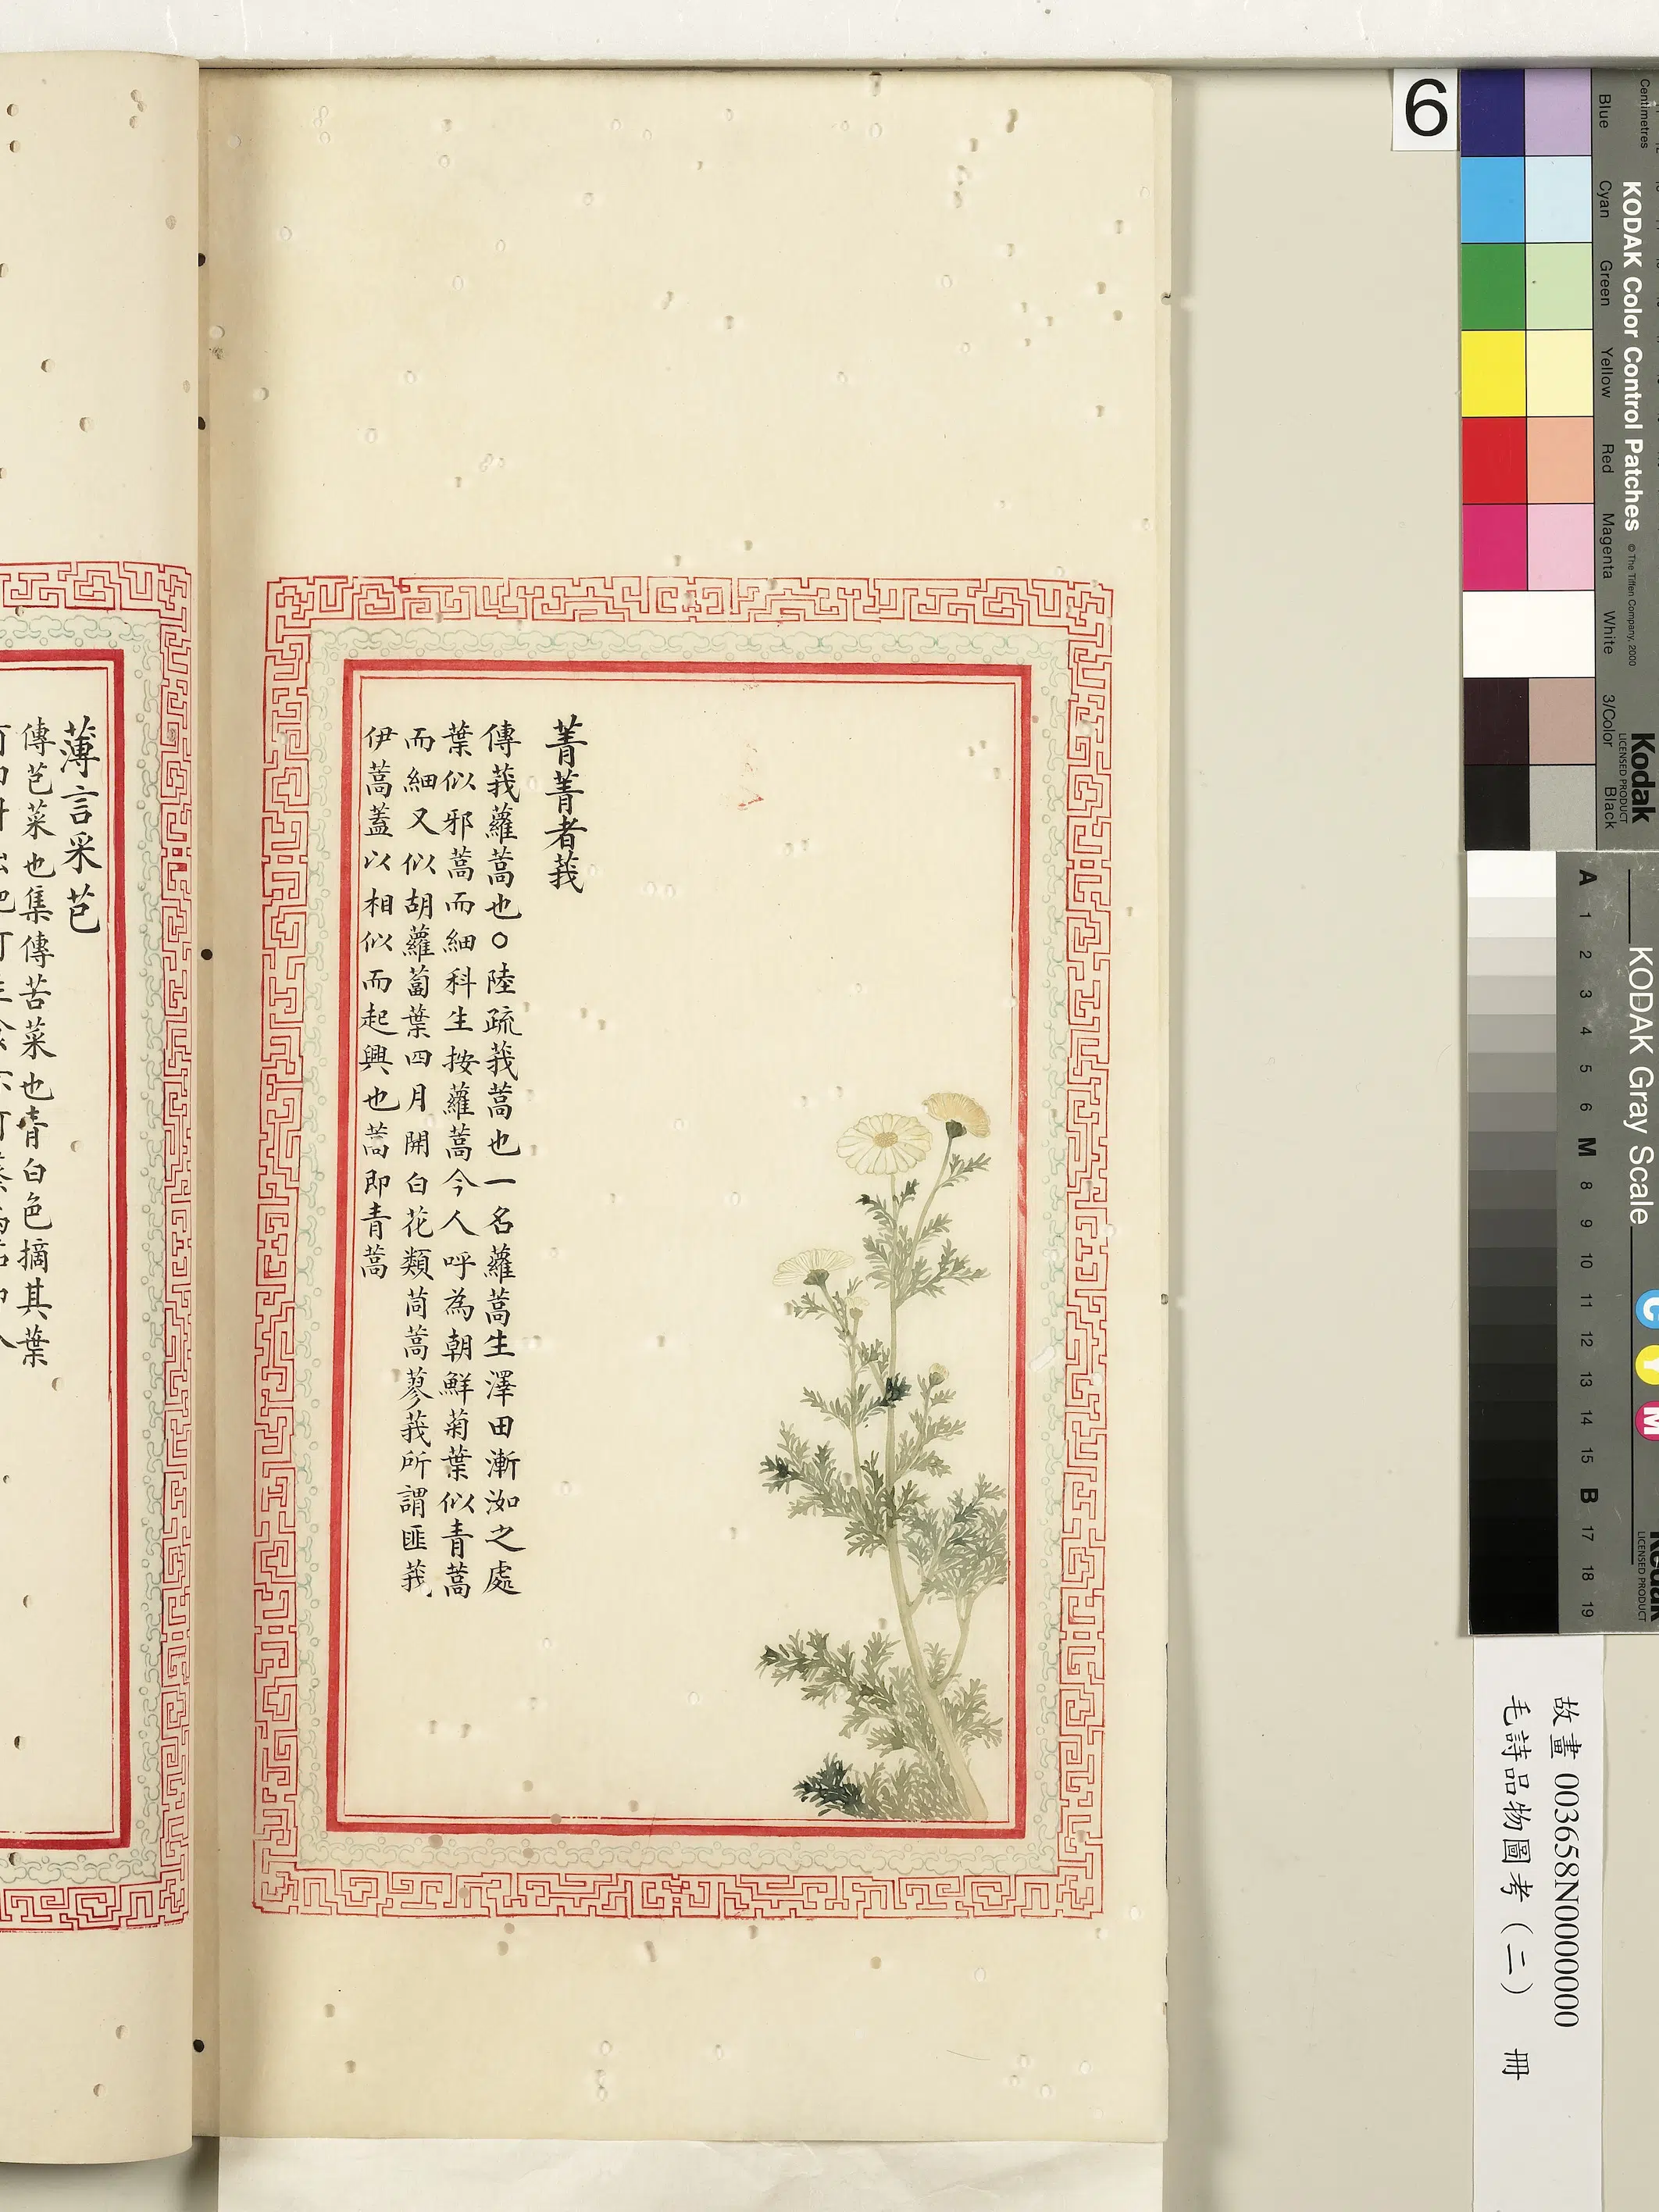 菁菁者莪
傳莪蘿蒿也○陸疏莪蒿也一名蘿蒿生澤田漸洳之處
葉似邪蒿而細科生按蘿蒿今人呼為朝鮮菊葉似青蒿
而細又似胡蘿蔔葉四月開白花類茼蒿蓼莪所謂匪莪
伊蒿蓋以相似而起興也蒿即青蒿
薄言采芑
傳芑菜也集傳苦菜也青白色摘其葉
6
Centimetres
Blue
Cyan
Green
Yellow
Red
Magenta
White
3/Color
Black
KODAK Color Control Patches
© The Tiffen Company, 2000
Kodak
LICENSED PRODUCT
A 1 2 3 4 5 6 M 8 9 10 11 12 13 14 15 B 17 18 19
KODAK Gray Scale
C Y M
Kodak
LICENSED PRODUCT
故畫 003658N000000000
毛詩品物圖考（二） 冊